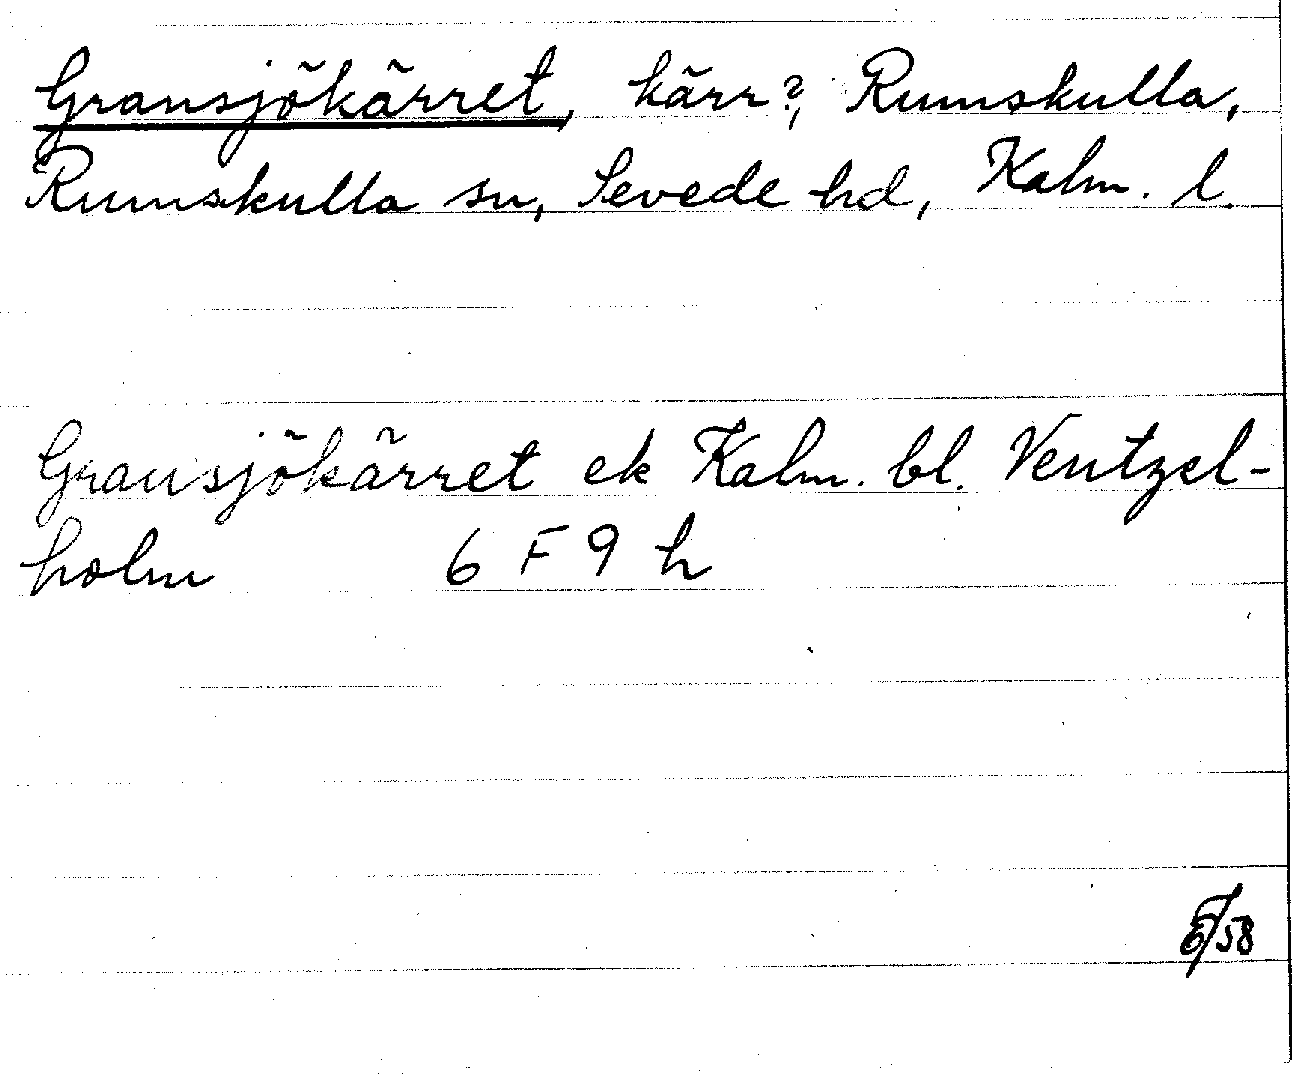 Gransjökärret, kärr?, Rumskulla,
Rumskulla sn, Sevede hd, Kalm. l.
Gransjökärret ek Kalm. bl. Ventzel-
holm 6 F 9 h